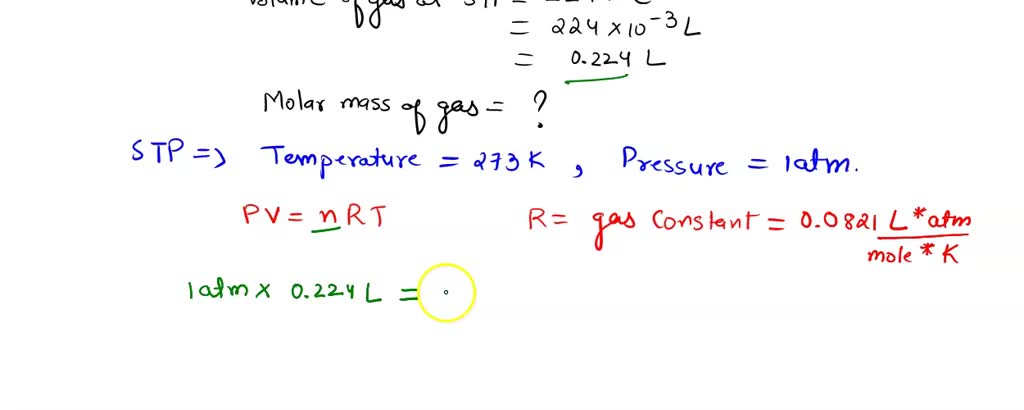 of gas at
= 224 × 10⁻³ L
= 0.224 L
Molar mass of gas = ?
STP => Temperature = 273 K , Pressure = 1 atm.
PV = nRT R = gas constant = 0.0821 L * atm
mole * K
1 atm × 0.224 L =